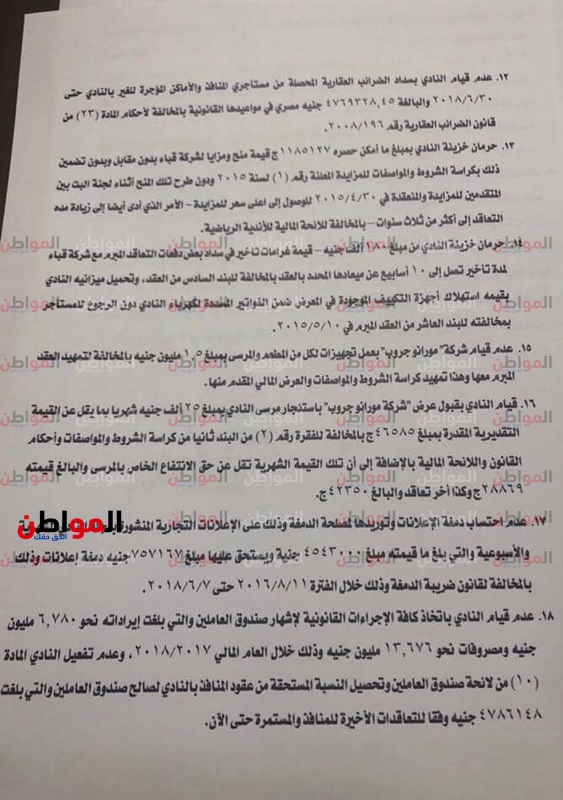 ١٢. عدم قيام النادي بسداد الضرائب العقارية المحصلة من مستأجري المنافذ والأماكن المؤجرة للغير بالنادي حتى
٢٠١٨/٦/٣٠ والبالغة ٤٧٦٩٣٢٨,٤٥ جنيه مصري في مواعيدها القانونية بالمخالفة لأحكام المادة (٢٣) من
قانون الضرائب العقارية رقم ٢٠٠٨/١٩٦.
١٣. حرمان خزينة النادي بمبلغ ما أمكن حصره ١١٨٥١٢٧ ج قيمة منح ومزايا لشركة قباء بدون مقابل وبدون تضمين
ذلك بكراسة الشروط والمواصفات للمزايدة المعلنة رقم (١) لسنة ٢٠١٥ ودون طرح تلك المنح أثناء لجنة البت بين
المتقدمين للمزايدة والمنعقدة في ٢٠١٥/٤/٣٠ للوصول إلى أعلى سعر للمزايدة – الأمر الذي أدى أيضا إلى زيادة مده
التعاقد إلى أكثر من ثلاث سنوات – بالمخالفة للائحة المالية للأندية الرياضية.
١٤. حرمان خزينة النادي من مبلغ ١٨٠ ألف جنيه – قيمة غرامات تأخير في سداد بعض دفعات التعاقد المبرم مع شركة قباء
لمدة تأخير تصل إلى ١٠ أسابيع عن ميعادها المحدد بالعقد بالمخالفة للبند السادس من العقد. وتحميل ميزانيه النادي
بقيمه استهلاك أجهزة التكييف الموجودة في المعرض ضمن الفواتير المسددة لكهرباء النادي دون الرجوع للمستأجر
بمخالفته للبند العاشر من العقد المبرم في ٢٠١٥/٥/١٠.
١٥. عدم قيام شركة "مورانو جروب" بعمل تجهيزات لكل من المطعم والمرسى بمبلغ ١,٥ مليون جنيه بالمخالفة لتمهيد العقد
المبرم معها وهذا تمهيد كراسة الشروط والمواصفات والعرض المالي المقدم منها.
١٦. قيام النادي بقبول عرض "شركة مورانو جروب" باستئجار مرسى النادي بمبلغ ٢٥ ألف جنيه شهريا بما يقل عن القيمة
التقديرية المقدرة بمبلغ ٤٦٥٨٥ ج بالمخالفة للفقرة رقم (٢) من البند ثانيا من كراسة الشروط والمواصفات وأحكام
القانون واللائحة المالية بالإضافة إلى أن تلك القيمة الشهرية تقل عن حق الإنتفاع الخاص بالمرسى والبالغ قيمته
٢٨٨٦٩ ج وكذا أخر تعاقد والبالغ ٤٢٣٥٠ ج.
١٧. عدم احتساب دمغة الإعلانات وتوريدها لمصلحة الدمغة وذلك على الإعلانات التجارية المنشورة
والأسبوعية والتي بلغ ما قيمته مبلغ ٤٥٤٣٠٠٠ جنية ويستحق عليها مبلغ ٧٥٧١٦٧ جنيه دمغة إعلانات وذلك
بالمخالفة لقانون ضريبة الدمغة وذلك خلال الفترة ٢٠١٦/٨/١١ حتى ٢٠١٨/٦/٧.
المواطن
الحق حقك
١٨. عدم قيام النادي باتخاذ كافة الإجراءات القانونية لإشهار صندوق العاملين والتي بلغت إيراداته نحو ٦,٧٨٠ مليون
جنيه ومصروفات نحو ١٣,٦٧٦ مليون جنيه وذلك خلال العام المالي ٢٠١٨/٢٠١٧، وعدم تفعيل النادي المادة
(١٠) من لائحة صندوق العاملين وتحصيل النسبة المستحقة من عقود المنافذ بالنادي لصالح صندوق العاملين والتي بلغت
٤٧٨٦١٤٨ جنيه وفقا للتعاقدات الأخيرة للمنافذ والمستمرة حتى الآن.